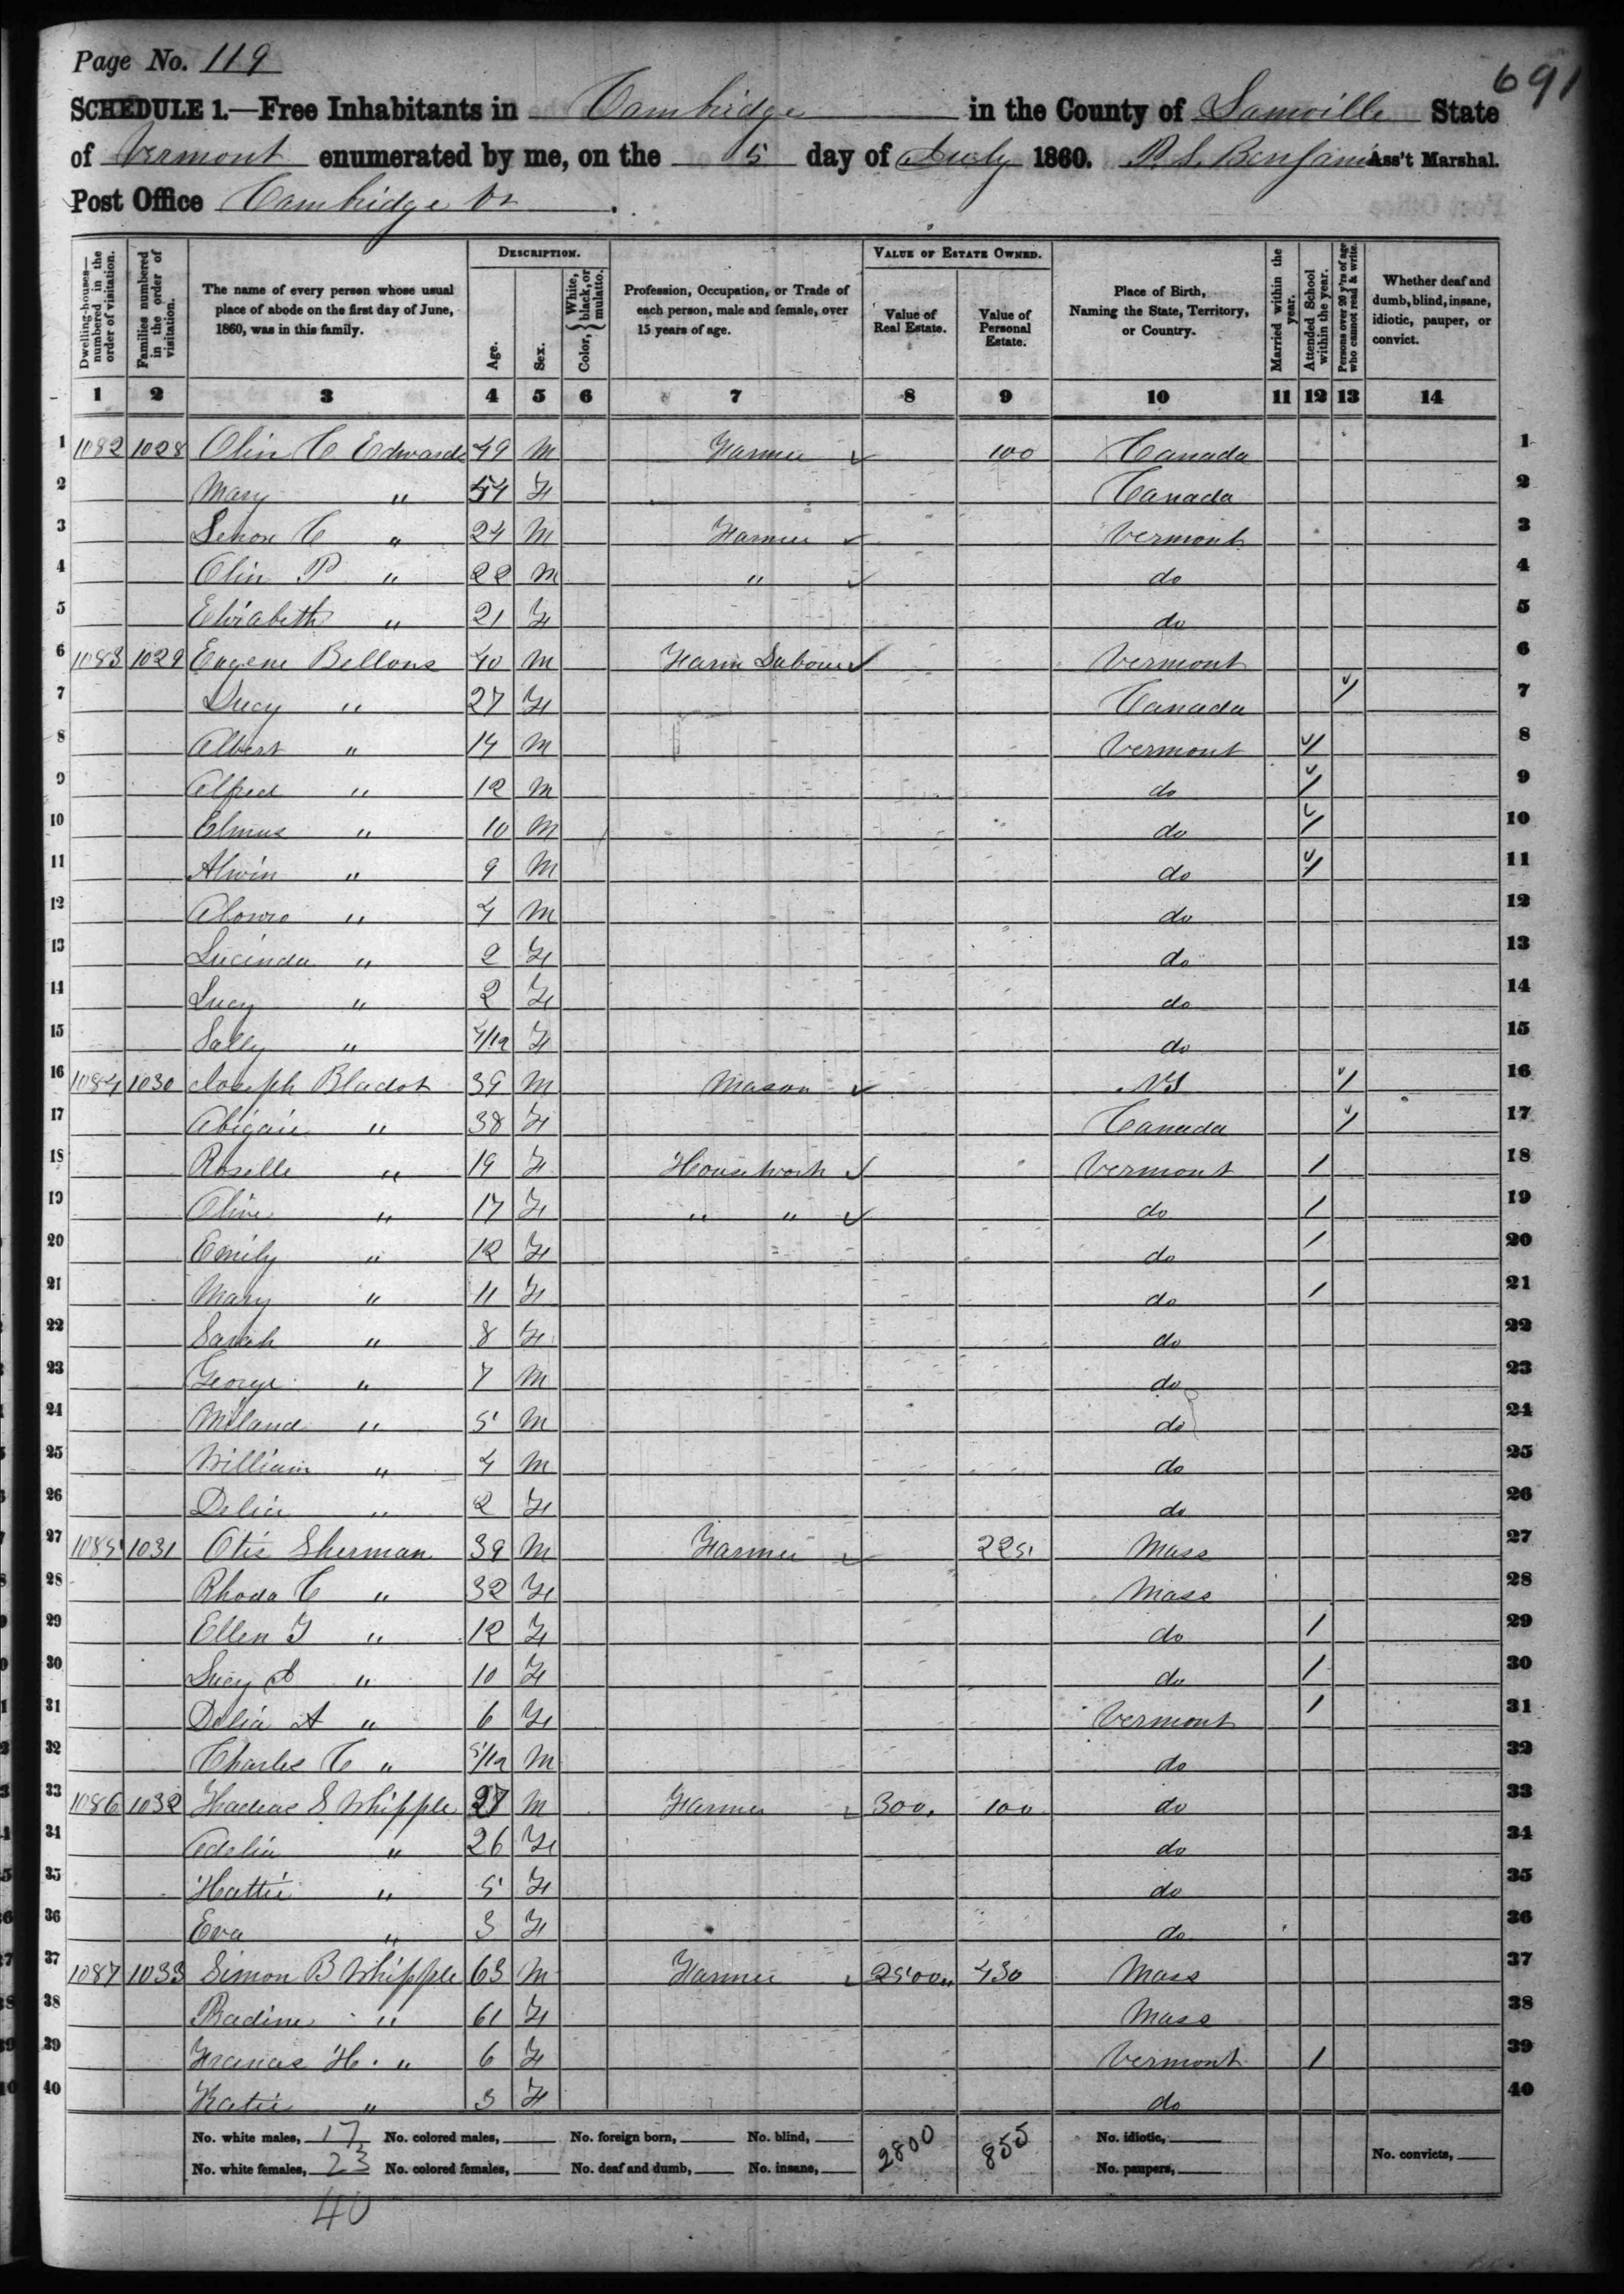 Page No. 119
691
SCHEDULE 1.—Free Inhabitants in Cambridge in the County of Lamoille State
of Vermont enumerated by me, on the 5 day of July 1860. Ass't Marshal.
Post Office Cambridge Vt
Dwelling-houses—numbered in the order of visitation.
Families numbered in the order of visitation.
The name of every person whose usual place of abode on the first day of June, 1860, was in this family.
DESCRIPTION.
Age.
Sex.
Color, { White, black, or mulatto.
Profession, Occupation, or Trade of each person, male and female, over 15 years of age.
VALUE OF ESTATE OWNED.
Value of Real Estate.
Value of Personal Estate.
Place of Birth, Naming the State, Territory, or Country.
Married within the year.
Attended School within the year.
Persons over 20 y'rs of age who cannot read & write.
Whether deaf and dumb, blind, insane, idiotic, pauper, or convict.
1 2 3 4 5 6 7 8 9 10 11 12 13 14
1 1082 1028 Olin C Edwards 49 M Farmer 100 Canada 1
2 Mary " F Canada 2
3 C " 24 M Farmer Vermont 3
4 Olin P " 22 M " do 4
5 Elizabeth " 21 F do 5
6 1083 1029 Eugene Bellows 40 M Farm Laborer Vermont 6
7 Lucy " 27 F Canada / 7
8 Albert " 14 M Vermont / 8
9 Alfred " 12 M do / 9
10 Elmus " 10 M do / 10
11 Alvin " 9 M do / 11
12 Alonzo " 4 M do 12
13 Lucinda " 2 F do 13
14 Lucy " 2 F do 14
15 Sally " 4/12 F do 15
16 1084 1030 Joseph Bladot 39 M Mason NY / 16
17 Abigail " 38 F Canada / 17
18 Roselle " 19 F Housework Vermont / 18
19 Olive " 17 F " " do / 19
20 Emily " 12 F do / 20
21 Mary " 11 F do / 21
22 Sarah " 8 F do 22
23 George " 7 M do 23
24 Miland " 5 M do 24
25 William " 4 M do 25
26 Delia " 2 F do 26
27 1085 1031 Otis Sherman 39 M Farmer 225 Mass 27
28 Rhoda C " 32 F Mass 28
29 Ellen J " 12 F do / 29
30 Lucy " 10 F do / 30
31 Delia A " 6 F Vermont / 31
32 Charles C " 5/12 M do 32
33 1086 1032 S Whipple M Farmer 300 100 do 33
34 Adelia " 26 F do 34
35 Hattie " 5 F do 35
36 Eva " 3 F do 36
37 1087 1033 Simon B Whipple 63 M Farmer 2500 430 Mass 37
38 " 61 F Mass 38
39 Frances H. " 6 F Vermont / 39
40 Katie " 3 F do 40
No. white males, 17 No. colored males, No. foreign born, No. blind, 2800 855 No. idiotic,
No. white females, 23 No. colored females, No. deaf and dumb, No. insane, No. paupers, No. convicts,
40